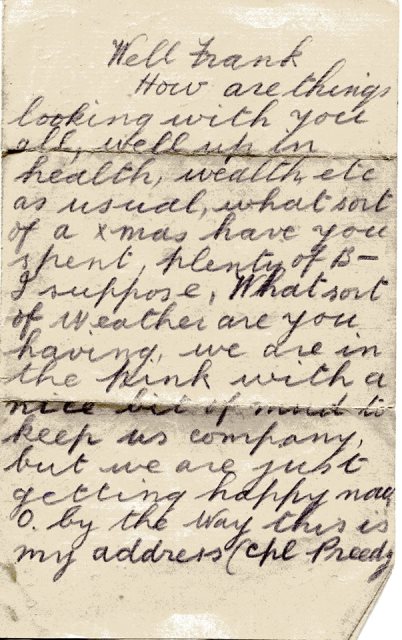 Well Frank
How are things
looking with you
all, well up in
health, wealth, etc
as usual, what sort
of a xmas have you
spent, plenty of B—
I suppose, What sort
of Weather are you
having, we are in
the pink with a
nice bit of mud to
keep us company,
but we are just
getting happy now
O. by the Way this is
my address (Cpl Preedy